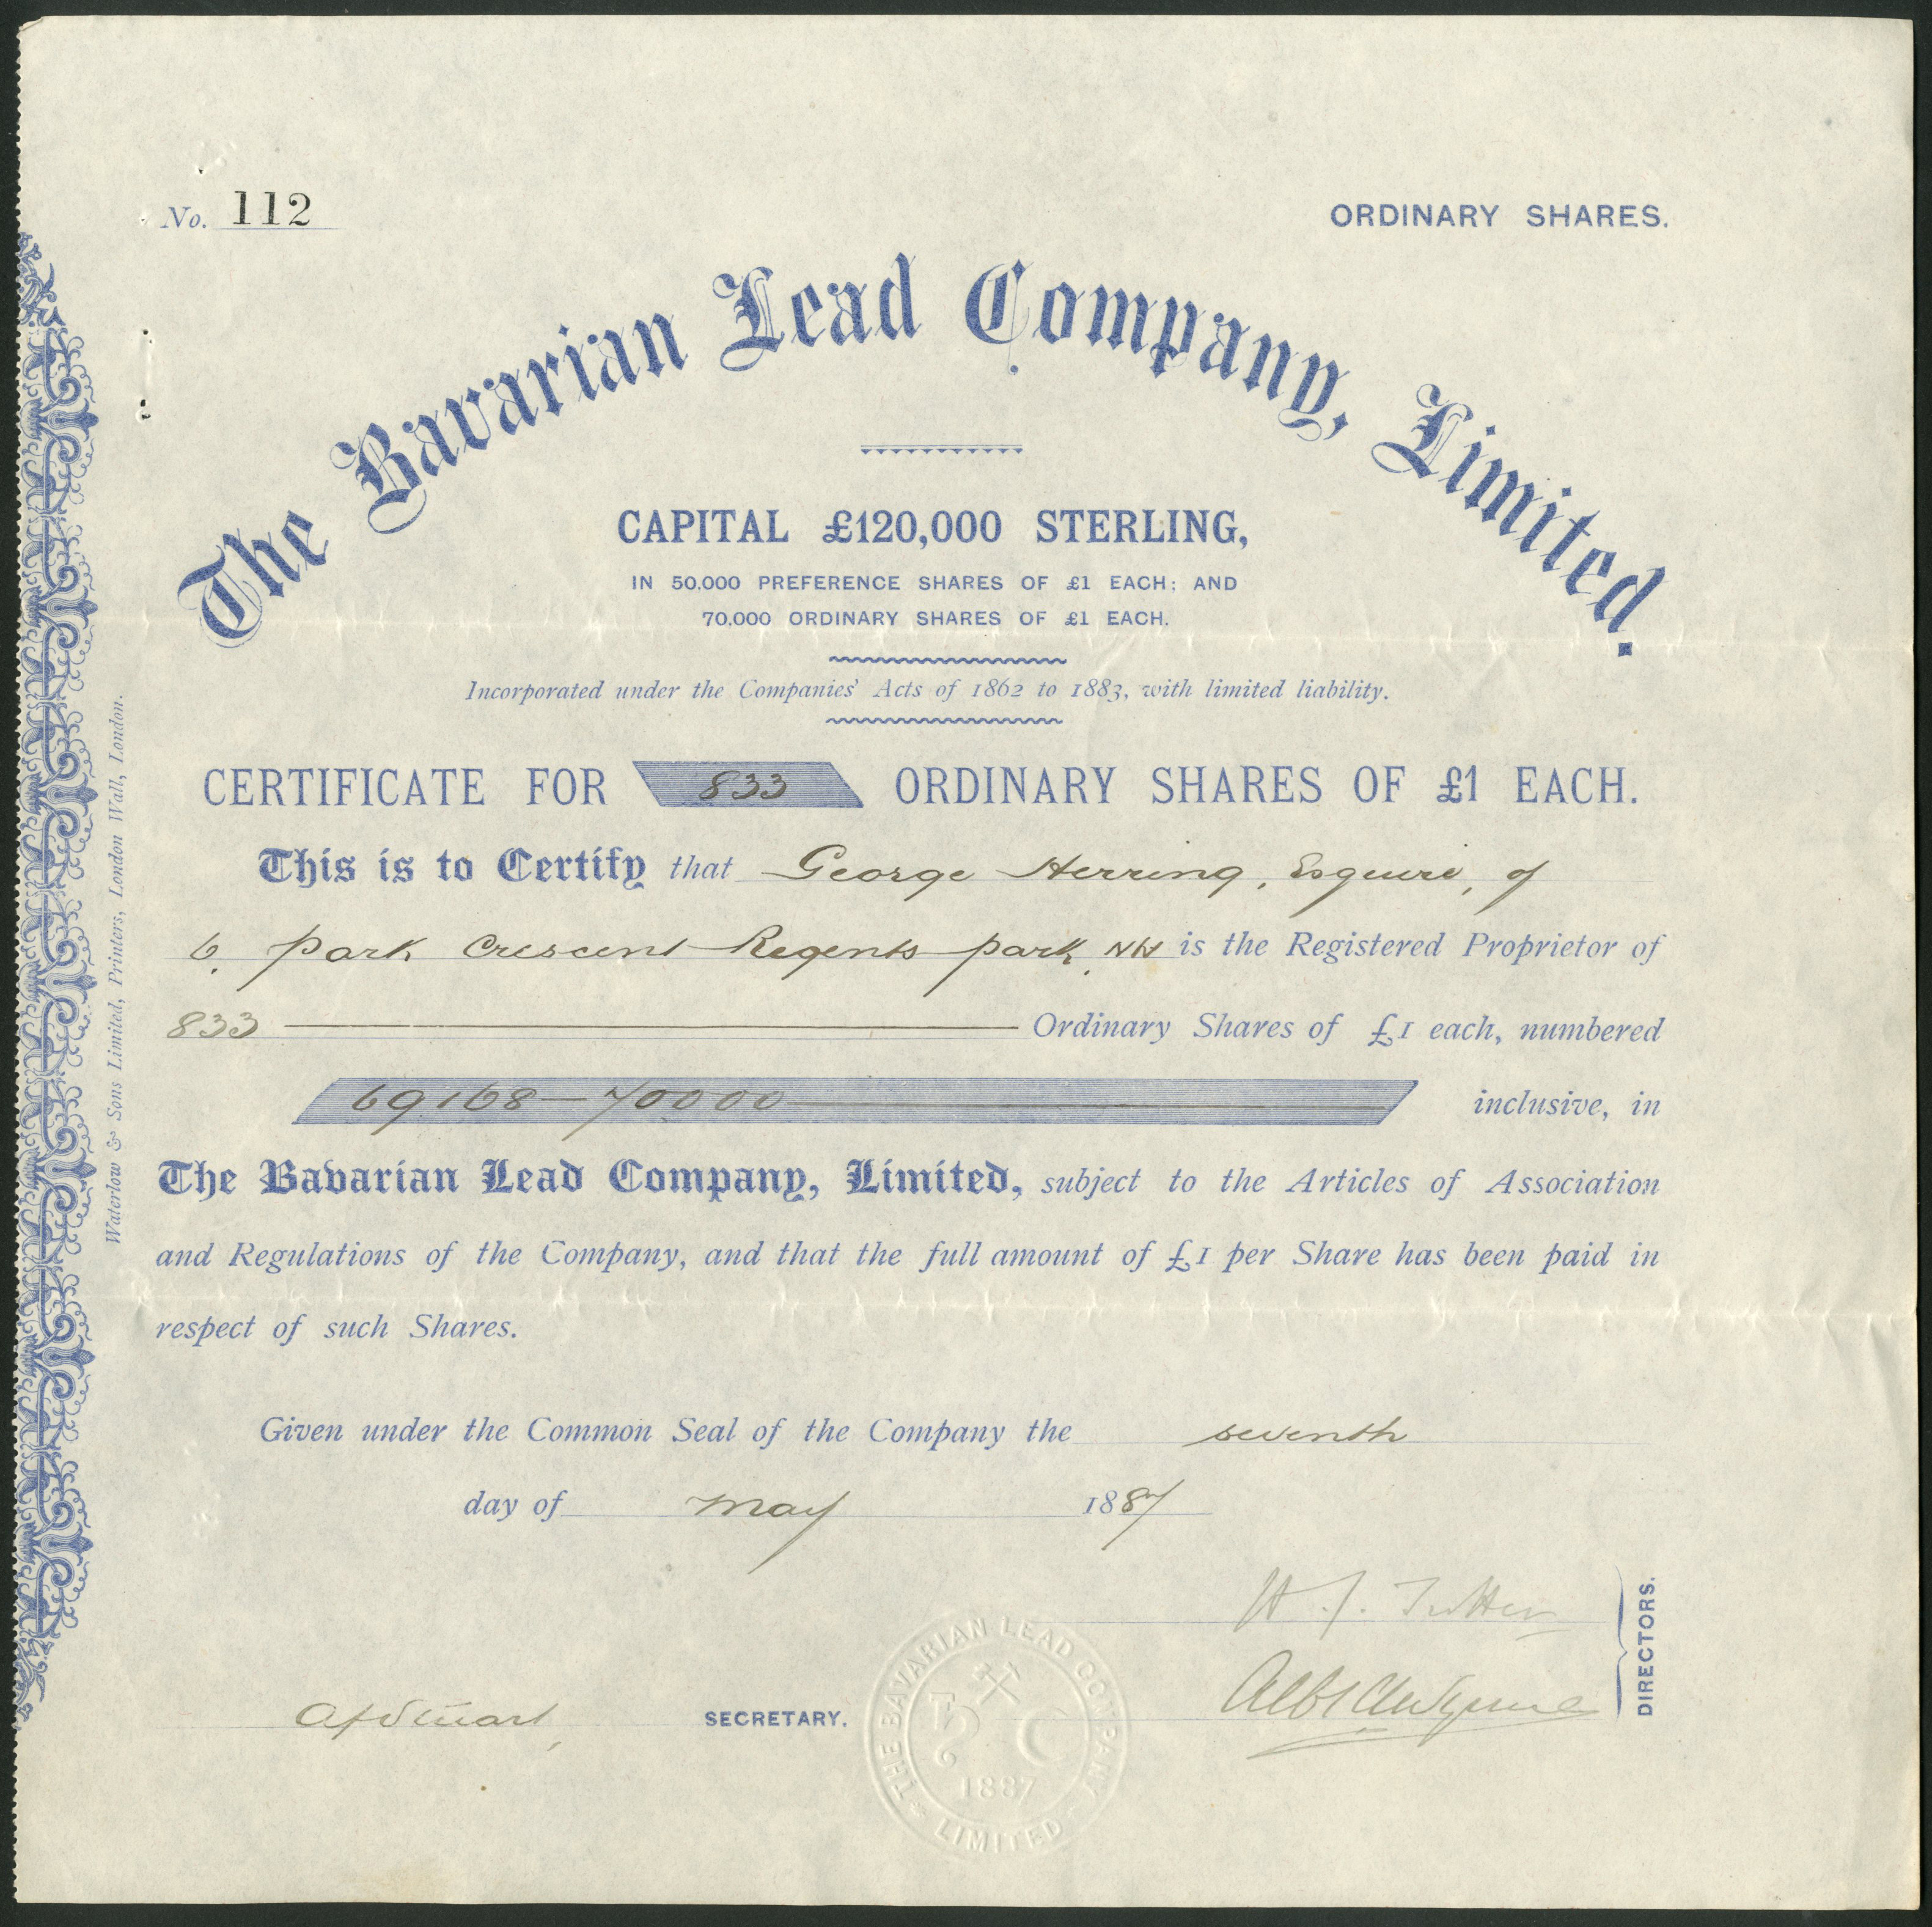 No. 112
ORDINARY SHARES.
The Bavarian Lead Company, Limited.
CAPITAL £120,000 STERLING,
IN 50,000 PREFERENCE SHARES OF £1 EACH; AND
70,000 ORDINARY SHARES OF £1 EACH.
Incorporated under the Companies' Acts of 1862 to 1883, with limited liability.
CERTIFICATE FOR 833 ORDINARY SHARES OF £1 EACH.
This is to Certify that George Herring, Esquire, of
6, Park Crescent Regents Park, NW is the Registered Proprietor of
833 Ordinary Shares of £1 each, numbered
69168—70000 inclusive, in
The Bavarian Lead Company, Limited, subject to the Articles of Association
and Regulations of the Company, and that the full amount of £1 per Share has been paid in
respect of such Shares.
Given under the Common Seal of the Company the seventh
day of May 1887
DIRECTORS.
SECRETARY.
THE BAVARIAN LEAD COMPANY
LIMITED
1887
Waterlow & Sons Limited, Printers, London Wall, London.